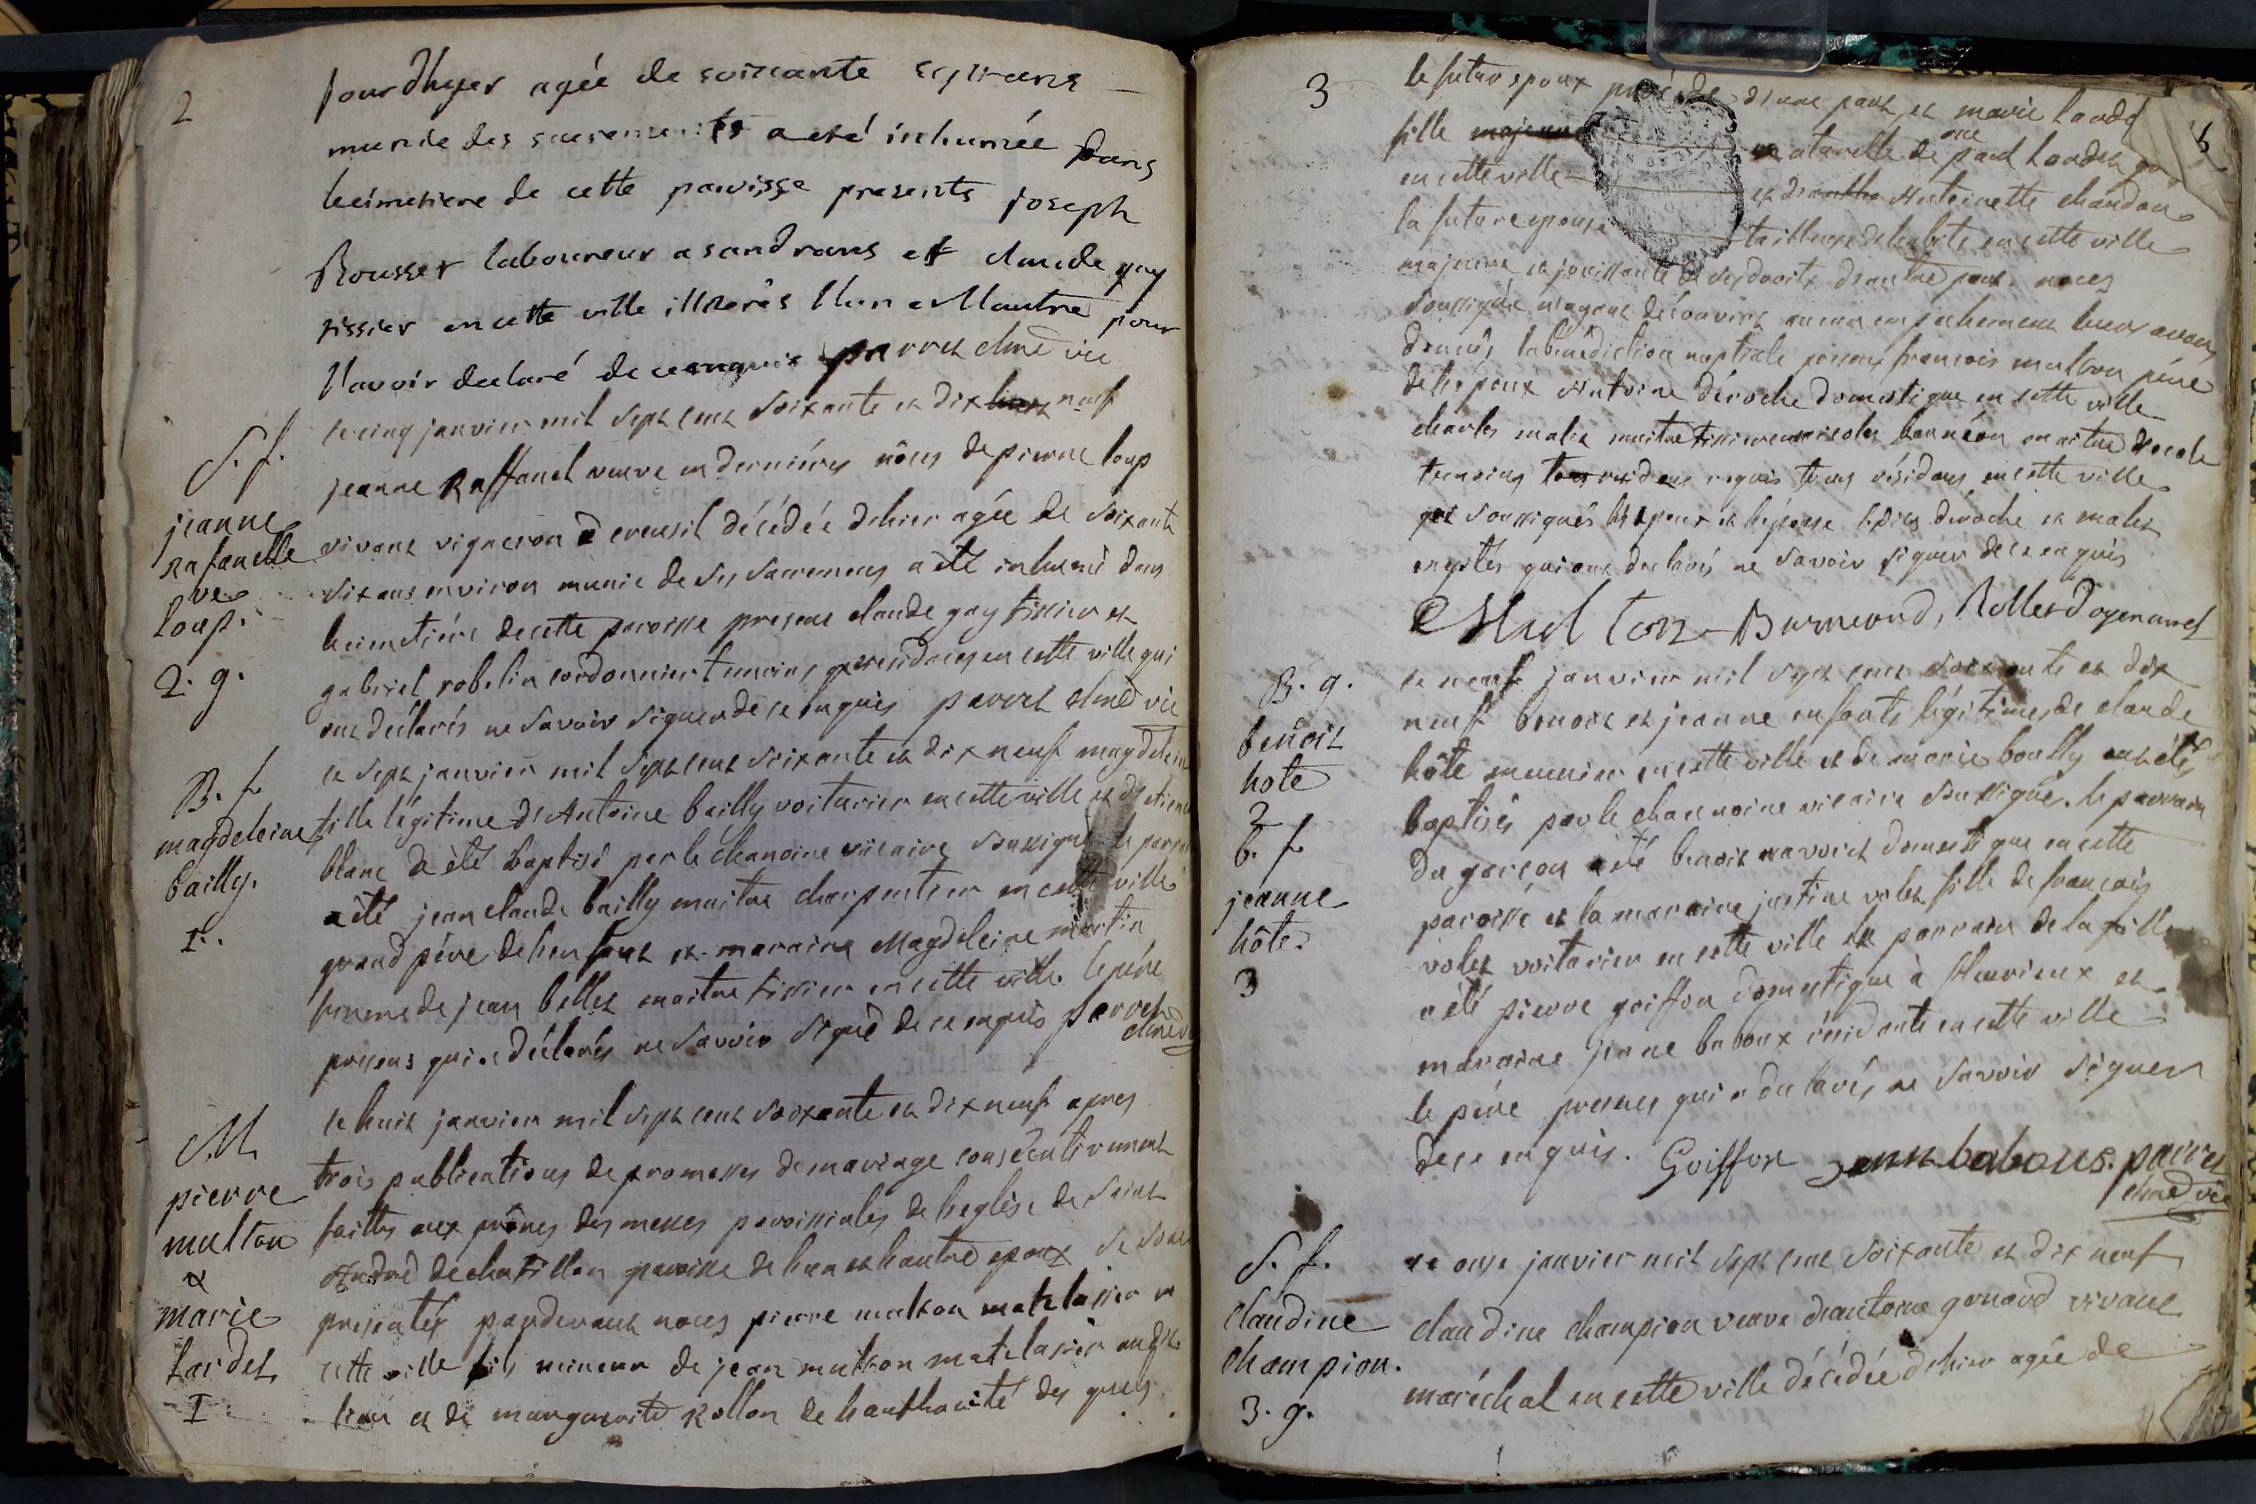 2
jour dhyer agée de soixante sept ans
munie des sacrements a eté inhumée dans
le cimetiere de cette paroisse presents joseph
Rousset laboureur a sandrans et claude gay
tissier en cette ville illiterés l'un et l'autre pour
l'avoir declaré de ce enquis perret chne vic
S. f.
jeanne
rafanelle
ve
loup.
2. g.
ce cinq janvier mil sept cent soixante et dix neuf
jeanne Raffanel veuve en dernières nôces de pierre loup
vivant vigneron a creusil décédée d'hier agée de soixante
six ans environ munie de ses sacremens a été inhumé dans
le cimetière de cette paroisse presens claude gay tissier et
gabriel robelin cordonnier temoins residans en cette ville qui
ont déclarés ne savoir signer de ce enquis perret chne vic
B. f.
magdeleine
bailly.
1.
ce sept janvier mil sept cent soixante et dix neuf magdeleine
fille légitime d'Antoine bailly voiturier en cette ville et d'etiennette
blanc a été baptisé par le chanoine vicaire soussigné le parrain
a été jean claude bailly maitre charpentier en cette ville
grand père de l'enfant et maraine Magdeleine martin
femme de jean bellet maitre tissier en cette ville. le père
presens qui a déclarés ne savoir signé de ce enquis perret
chne vic
M.
pierre
multon
&
marie
lardet
1
ce huit janvier mil sept cent soixante et dix neuf apres
trois publications de promesses de mariage consécutivement
faittes aux prônes des messes paroissiales de l'eglise de saint
André de chatillon paroisse de l'un et l'autre epoux se sont
presentés pardevant nous pierre multon matelassier en
cette ville fils mineur de jean multon matelassier au dit
lieu et de marguerite Rollon de l'authorité des quels
3
le futur epoux procède d'une part, et marie lardet
fille naturelle de paul lardet
en cette ville et Antoinette chandon
la future epouse tailleuse d'habits en cette ville
majeure et jouissante de ses droits d'autre part. nous
soussigné n'ayant découvert aucun empechement leur avons
donnés la bénédiction nuptiale presens francois multon père
de l'epoux Antoine déroche domestique en cette ville
charles malet maitre tissier nicolas barnéon maitre d'ecole
temoins requis tous résidans en cette ville
soussignés l'epoux et l'épouse lesdits déroche et malet
exceptés qui ont declarés ne savoir signer de ce enquis
Multon Burneond, Rollet doyen curé
B. g.
benoit
hote
2
b. f.
jeanne
hôte.
3
ce neuf janvier mil sept cent soixante et dix
neuf benoit et jeanne enfants légitimes de claude
hôte meunier en cette ville et de marie boully ont étés
baptisés par le chanoine vicaire soussigné. le parrain
du garcon a été benoit ravoiret domestique en cette
paroisse et la maraine justine volet fille de francois
volet voiturier en cette ville le parrain de la fille
a été pierre goiffon domestique à fleurieux et
maraine jeanne baboux résidante en cette ville
le père presens qui a declarés ne savoir signer
de ce enquis. Goiffon jenne babous. perret
chne vic
S. f.
claudine
champion.
3. g.
ce onze janvier mil sept cent soixante et dix neuf
claudine champion veuve d'antoine gonard vivant
maréchal en cette ville décédée d'hier agée de